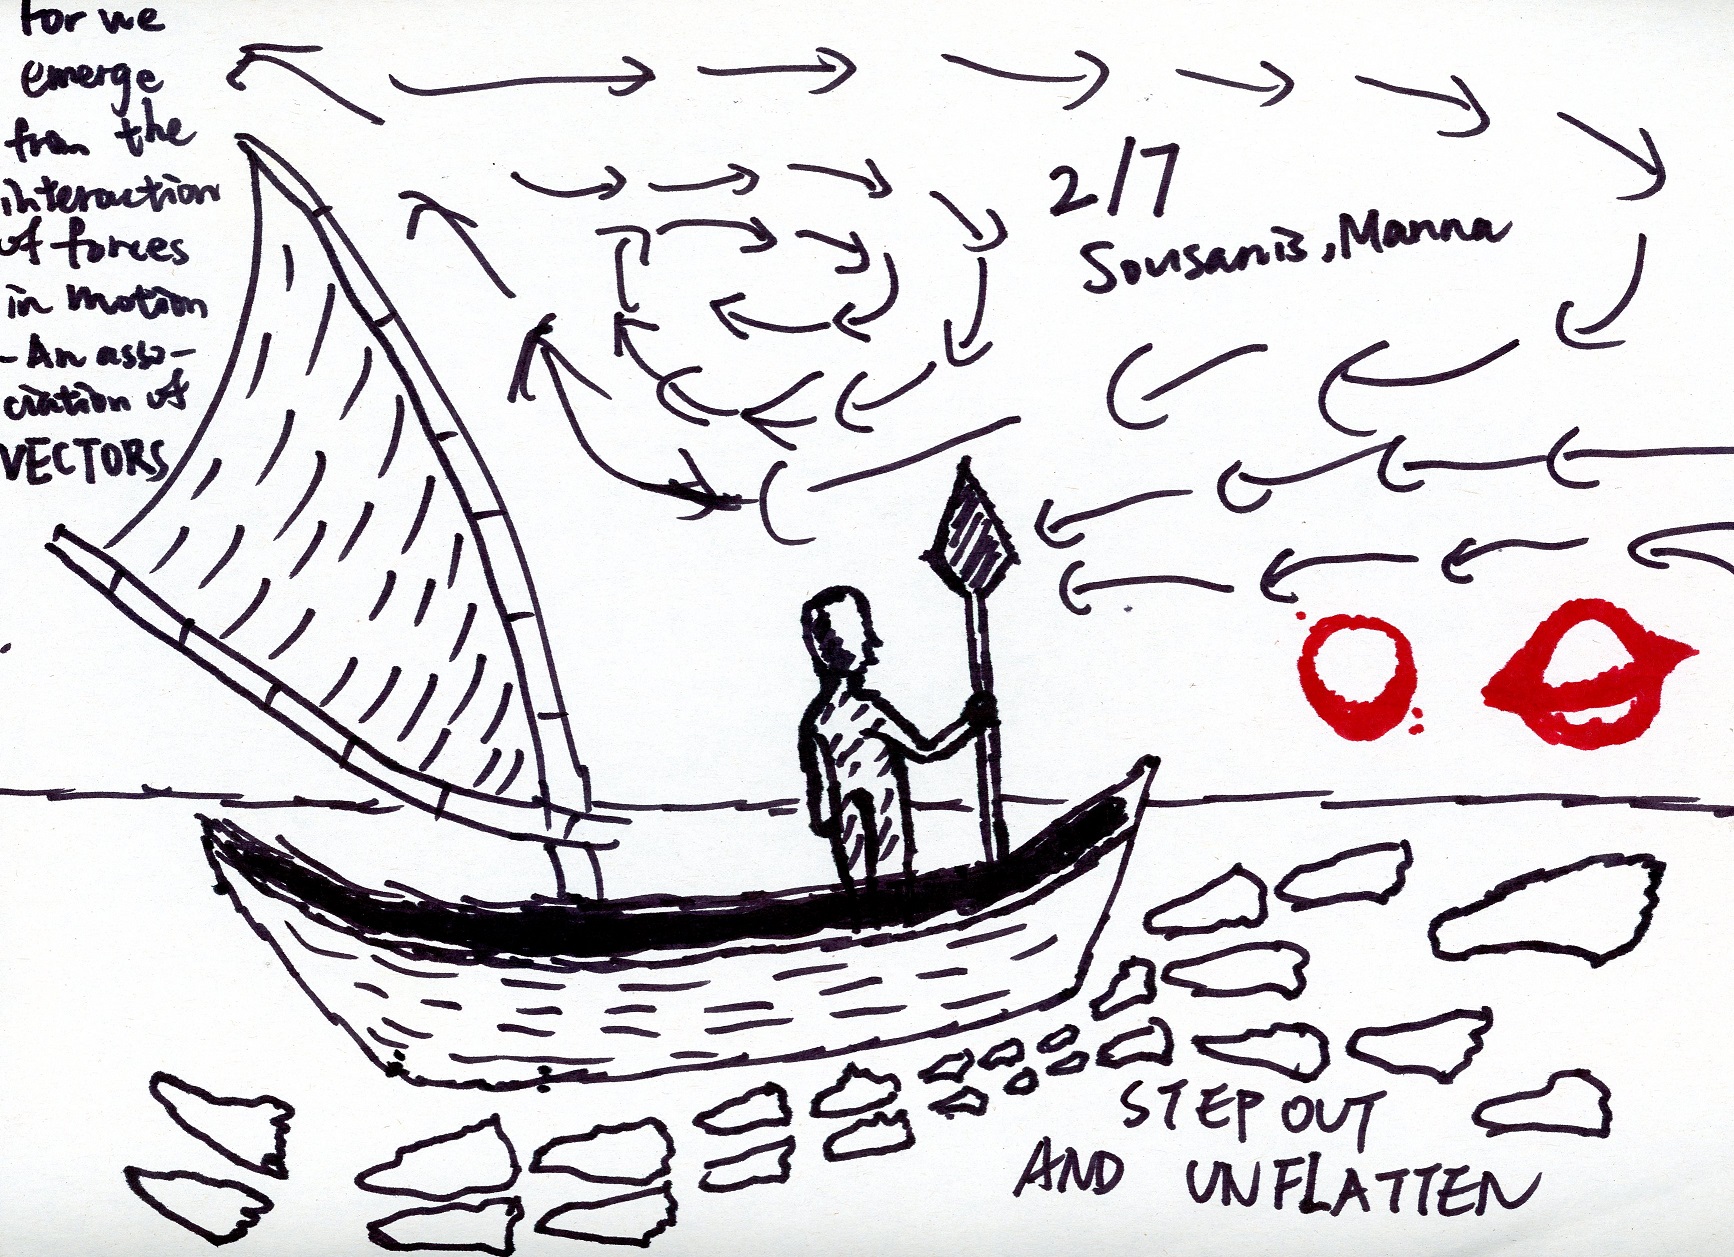 for we
emerge
from the
interaction
of forces
in motion
- An asso-
ciation of
VECTORS
2/7
Sousanis, Manna
STEP OUT
AND UNFLATTEN